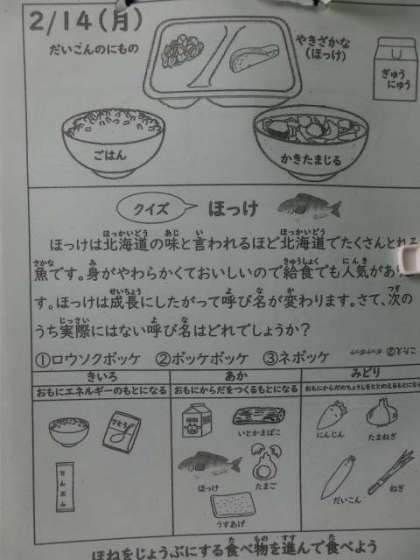 2/14(月)
だいこんのにもの
やきざかな
(ほっけ)
ぎゅう
にゅう
ごはん
かきたまじる
クイズ ほっけ
ほっけは北海道の味と言われるほど北海道でたくさんとれる
魚です。身がやわらかくておいしいので給食でも人気があ
す。ほっけは成長にしたがって呼び名が変わります。さて、次の
うち実際にはない呼び名はどれでしょうか?
①ロウソクボッケ ②ボッケボッケ ③ネボッケ
きいろ あか みどり
おもにエネルギーのもとになる おもにからだをつくるもとになる おもにからだのちょうしをととのえるもとになる
いとかまぼこ
にんじん
たまねぎ
ほっけ
たまご
でんぷん
だいこん
ねぎ
うすあげ
ほねをじょうぶにする食べ物を進んで食べよう